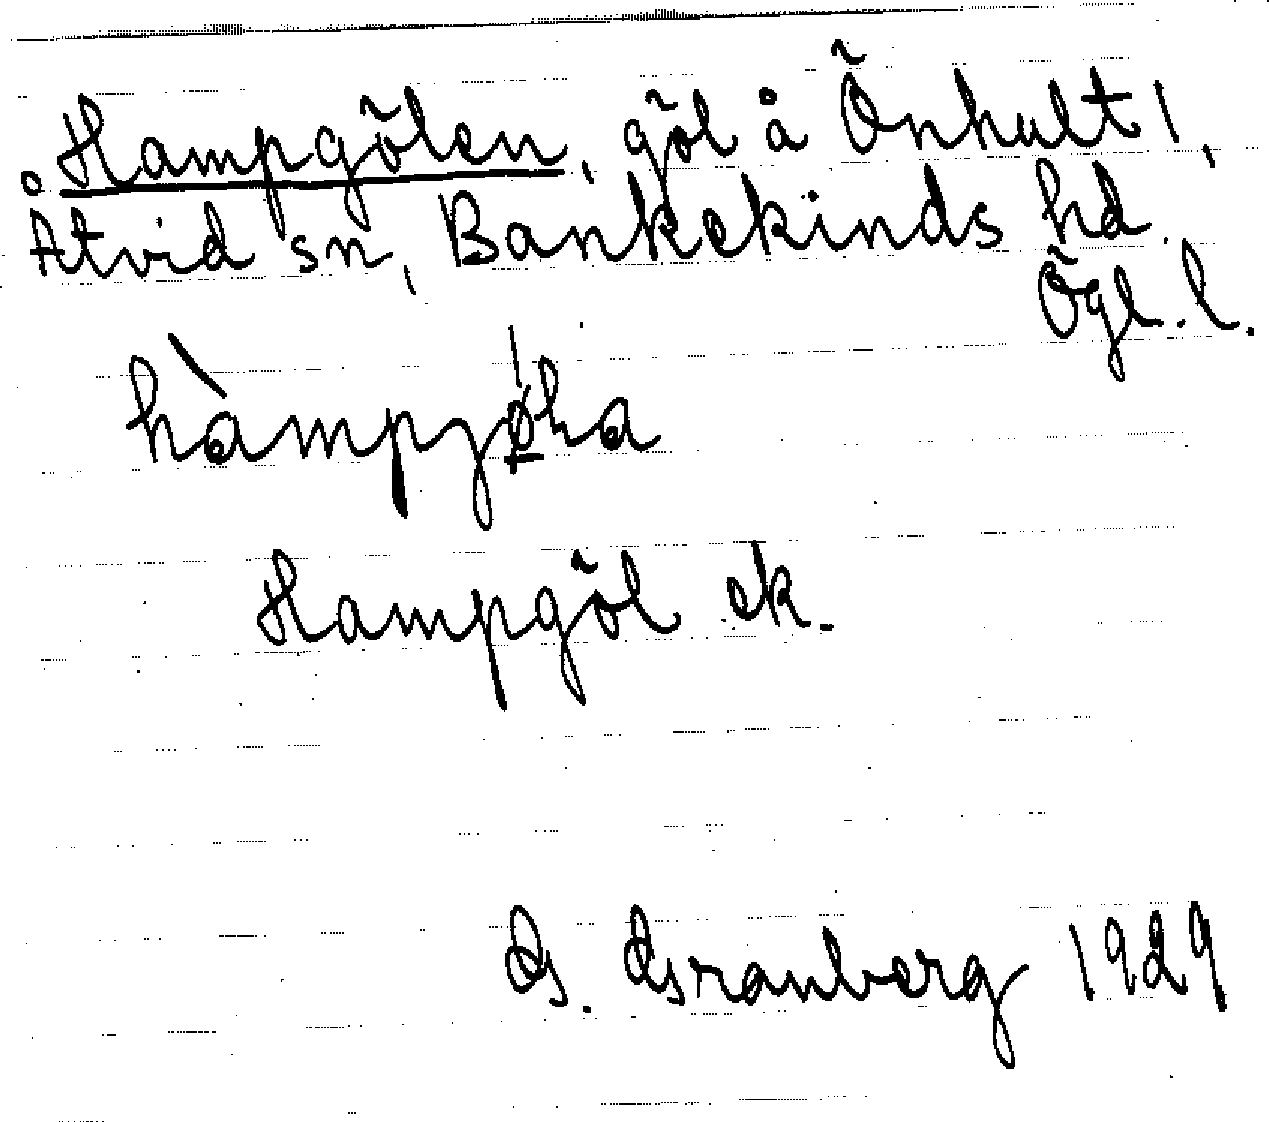 Hampgölen, göl å Önhult 1,
Åtvid sn, Bankekinds hd.
Ögl. l.
Hampgöl ek.
G. Granberg 1929